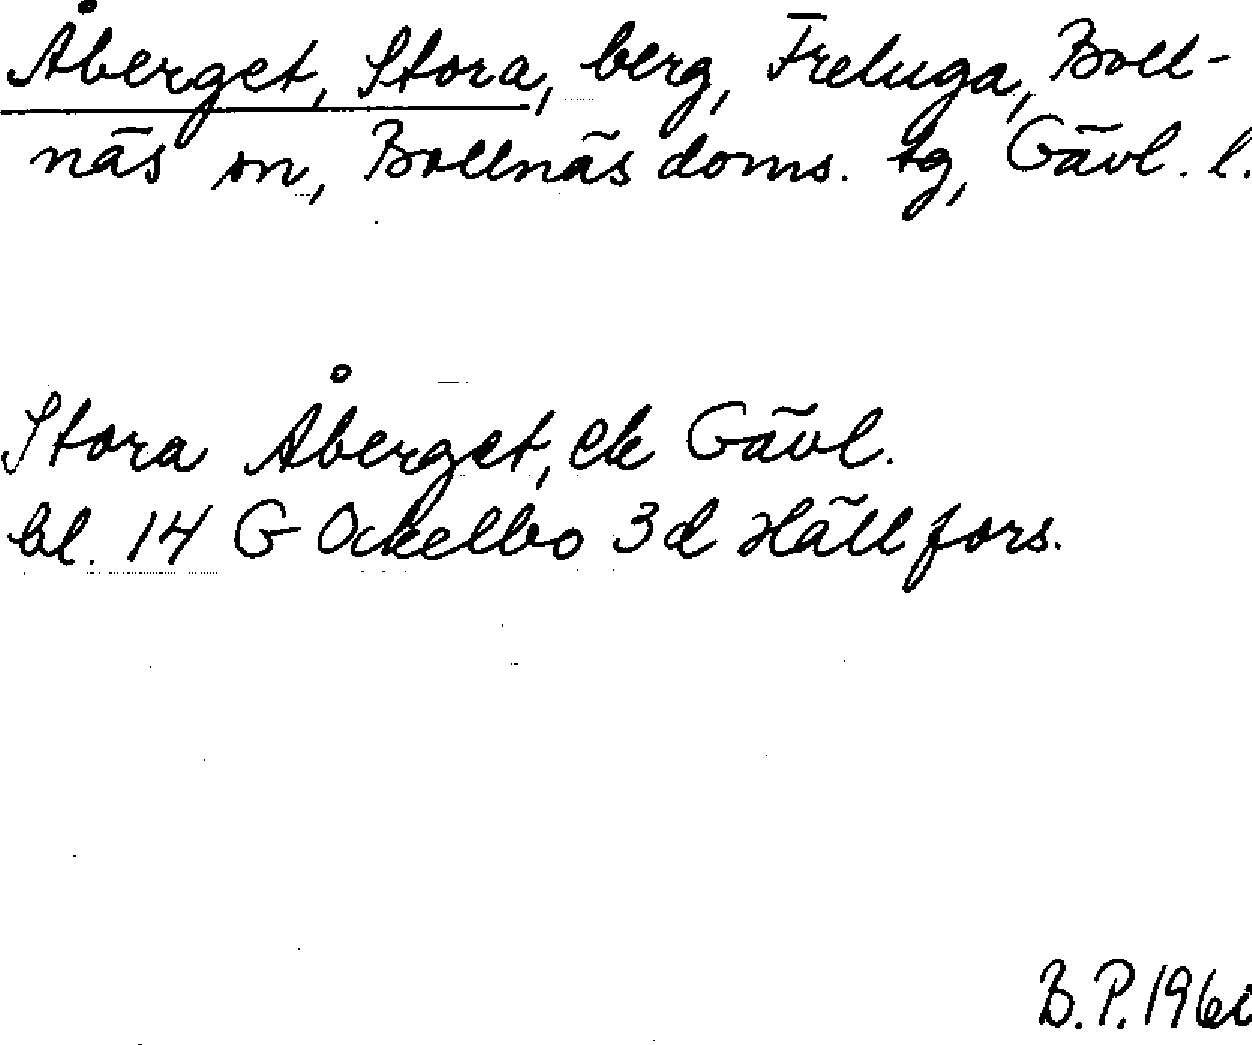 Åberget, Stora, berg, Freluga, Boll-
näs sn, Bollnäs doms. tg, Gävl. l.
Stora Åberget, ek Gävl.
bl. 14 G Ockelbo 3d Hällfors.
B.P.